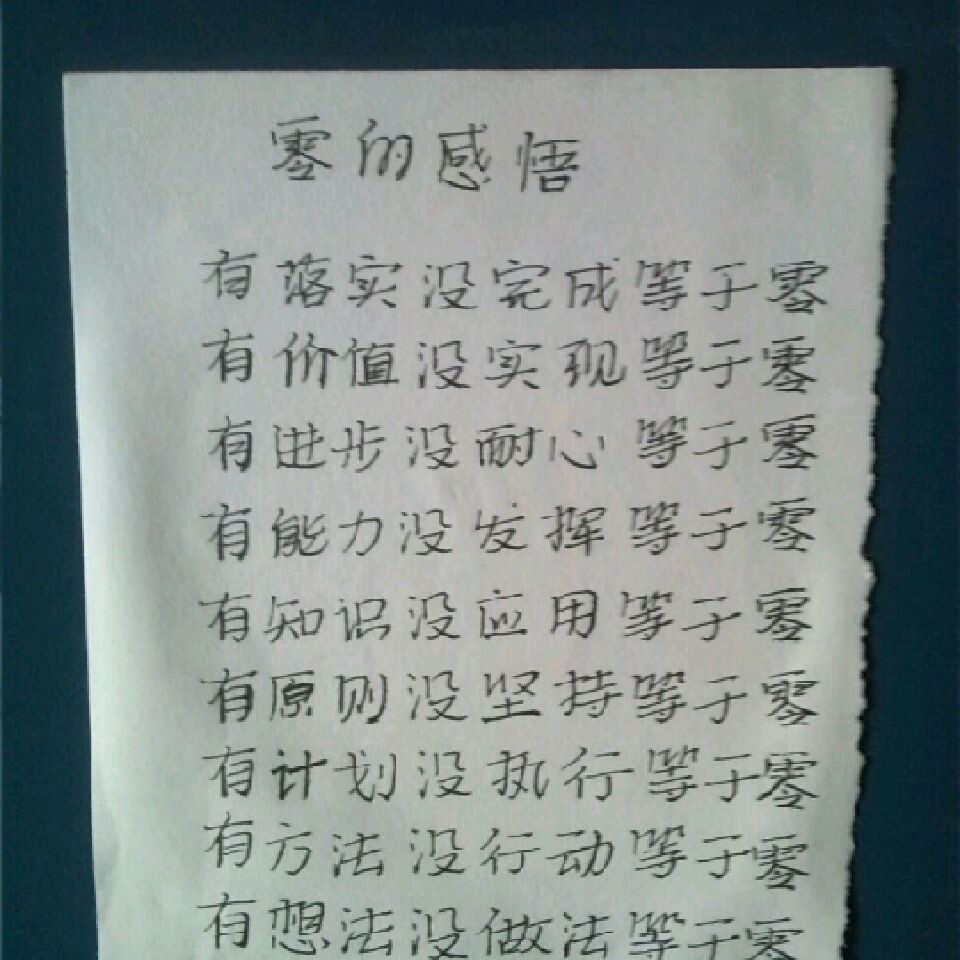 零的感悟
有落实没完成等于零
有价值没实现等于零
有进步没耐心等于零
有能力没发挥等于零
有知识没应用等于零
有原则没坚持等于零
有计划没执行等于零
有方法没行动等于零
有想法没做法等于零